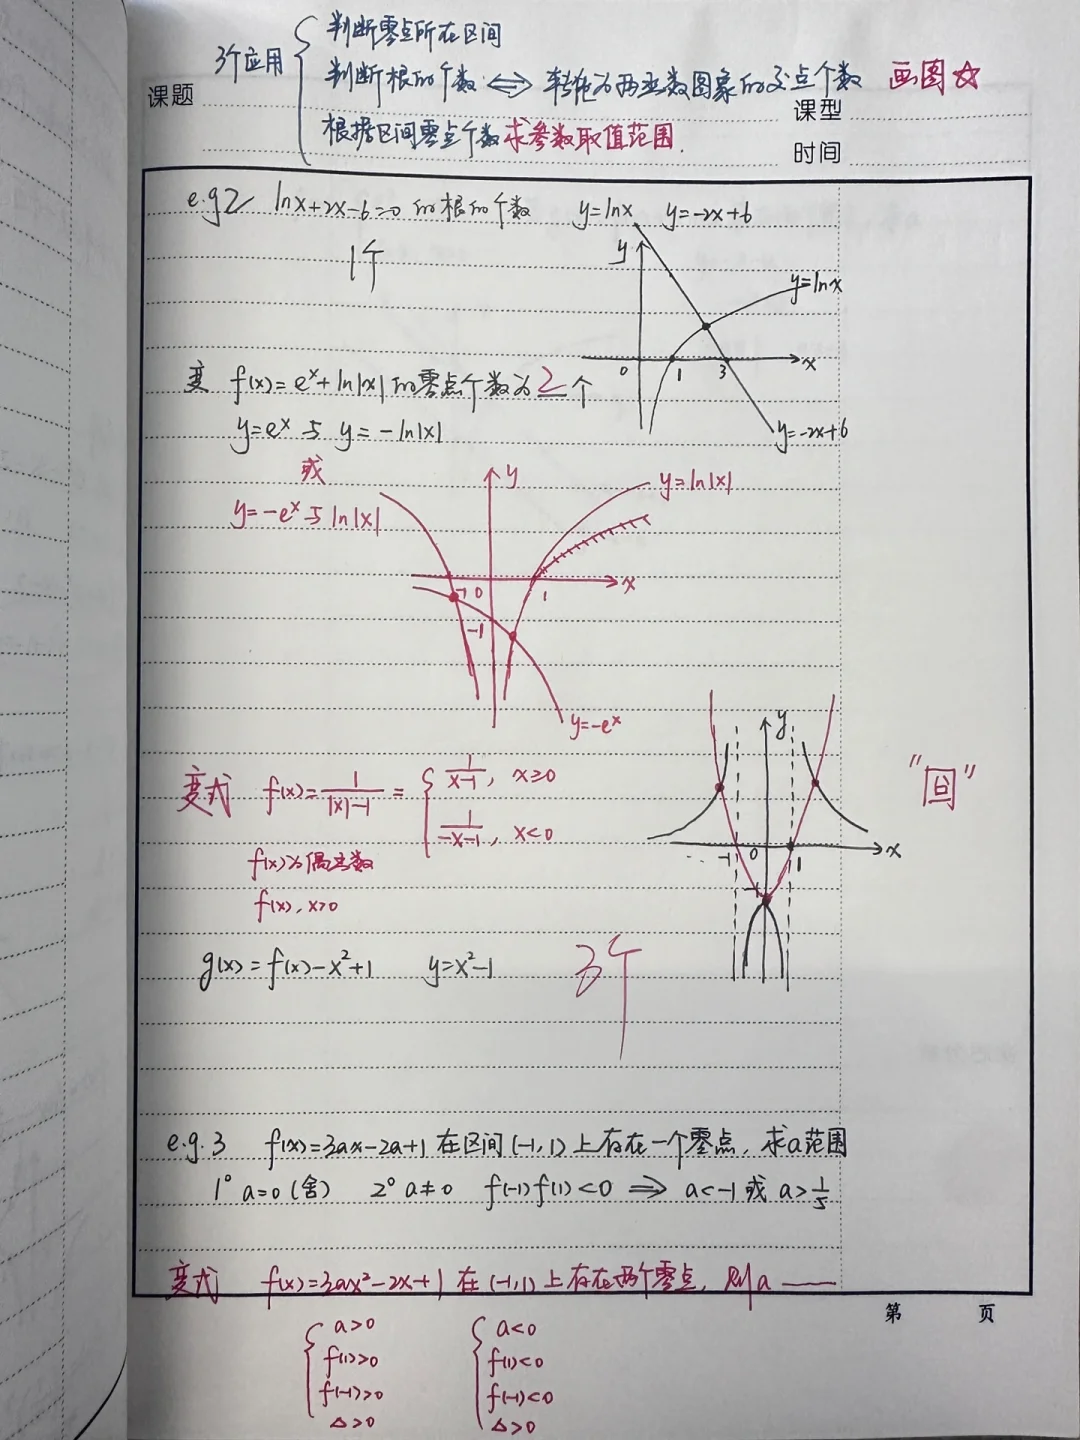 3个应用
判断零点所在区间
判断根的个数 ⇔ 转化为两函数图象的交点个数 画图☆
根据区间零点个数求参数取值范围.
课题
课型
时间
e.g2 lnx+2x-6=0 的根的个数 y=lnx y=-2x+6
1个
y
y=lnx
0 1 3 x
y=-2x+6
变 f(x)=eˣ+ln|x| 的零点个数为 2 个
y=eˣ 与 y=-ln|x|
或
y=-eˣ与 ln|x|
y
y=ln|x|
-1 0 1 x
-1
y=-eˣ
变式 f(x)=1/(|x|-1) = { 1/(x-1), x≥0
1/(-x-1), x<0
f(x)为偶函数
f(x), x>0
y
-1 0 1 x
-1
"囙"
g(x)=f(x)-x²+1 y=x²-1 3个
e.g.3 f(x)=3ax-2a+1 在区间(-1,1)上存在一个零点, 求a范围
1° a=0 (舍) 2° a≠0 f(-1)f(1)<0 ⇒ a<-1 或 a>1/5
变式 f(x)=3ax²-2x+1 在(-1,1)上存在两个零点, 则a ——
第 页
{ a>0 { a<0
f(1)>0 f(1)<0
f(-1)>0 f(-1)<0
Δ>0 Δ>0